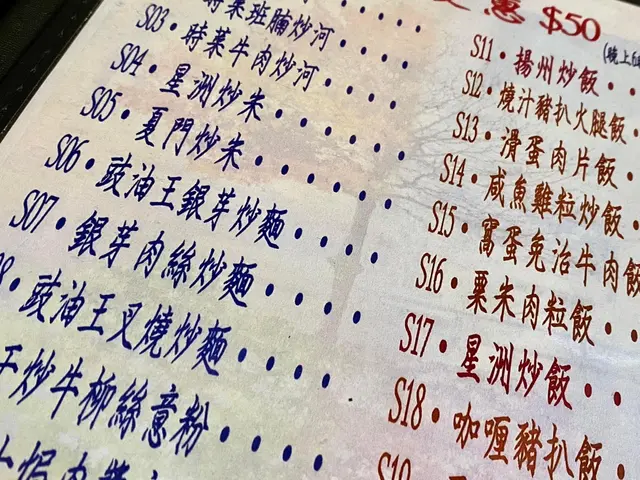 時菜班腩炒河
S03・時菜牛肉炒河
S04・星洲炒米
S05・夏門炒米
S06・豉油王銀芽炒麵
S07・銀芽肉絲炒麵
豉油王叉燒炒麵
干炒牛柳絲意粉
惠 $50
(晚上
S11・揚州炒飯
S12・燒汁豬扒火腿飯
S13・滑蛋肉片飯
S14・咸魚雞粒炒飯
S15・窩蛋免治牛肉飯
S16・粟米肉粒飯
S17・星洲炒飯
S18・咖喱豬扒飯